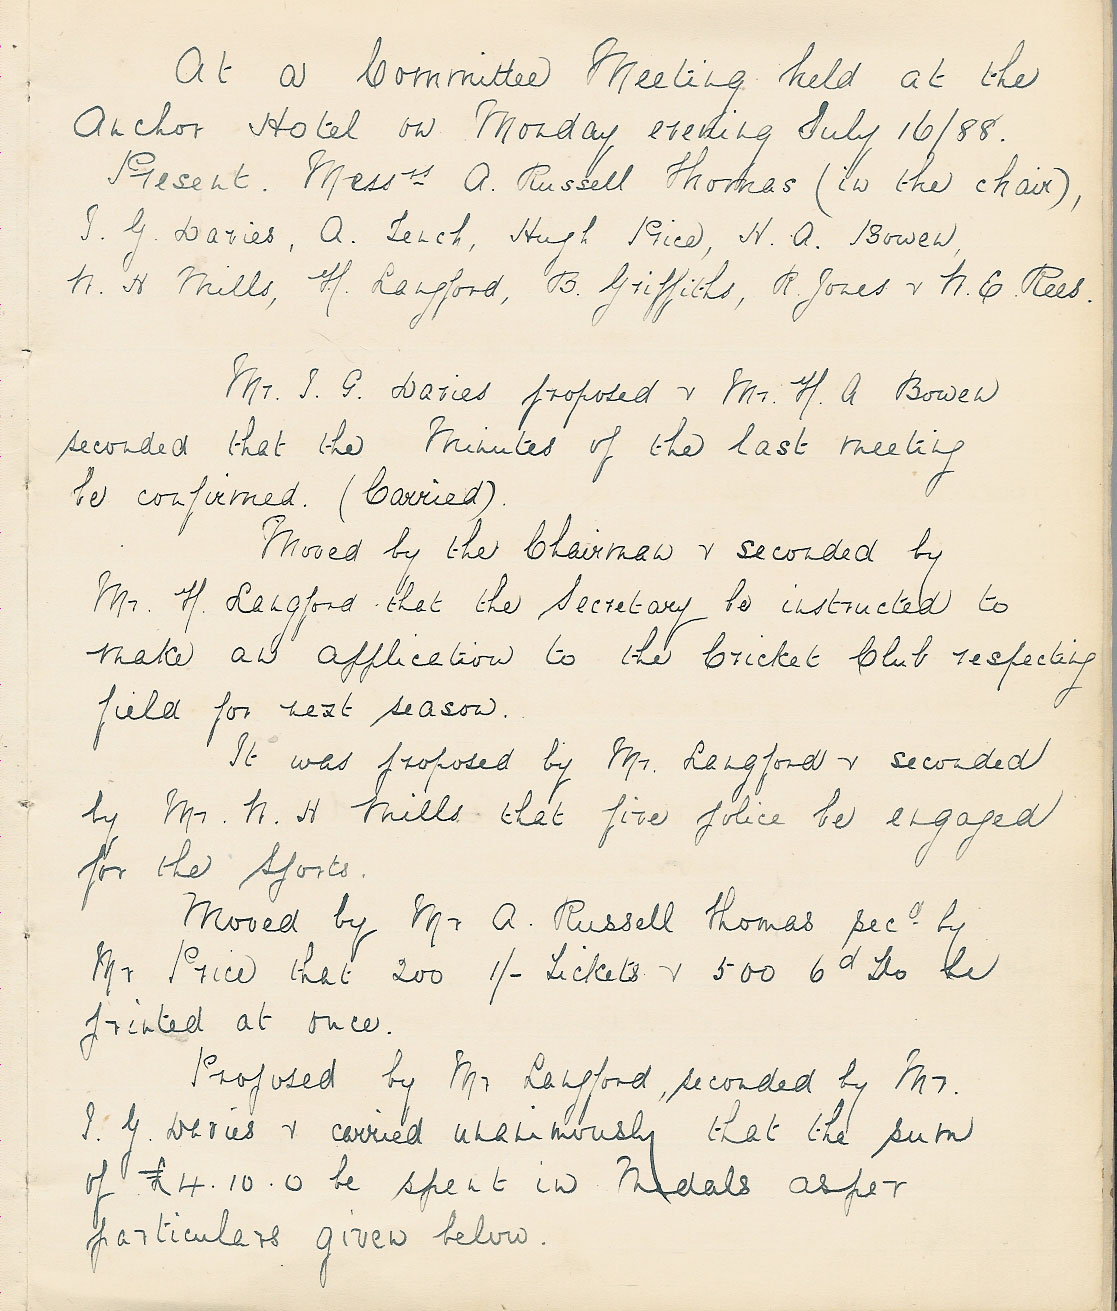 At a Committee Meeting held at the
Anchor Hotel on Monday evening July 16/88.
Present. Messrs A. Russell Thomas (in the chair),
I. G. Davies, A. Lench, Hugh Price, H. A. Bowen,
W. H Mills, H. Langford, B. Griffiths, R. Jones & W. E. Rees.
Mr. I. G. Davies proposed & Mr. H. A Bowen
seconded that the Minutes of the last meeting
be confirmed. (Carried).
Moved by the Chairman & seconded by
Mr. H. Langford that the Secretary be instructed to
make an application to the Cricket Club respecting
field for next season.
It was proposed by Mr. Langford & seconded
by Mr. W. H Mills that five police be engaged
for the Sports.
Moved by Mr A. Russell Thomas secd by
Mr Price that 200 1/- Tickets & 500 6d Do be
printed at once.
Proposed by Mr Langford, seconded by Mr.
I. G. Davies & carried unanimously that the sum
of £4.10.0 be spent in Medals as per
particulars given below.